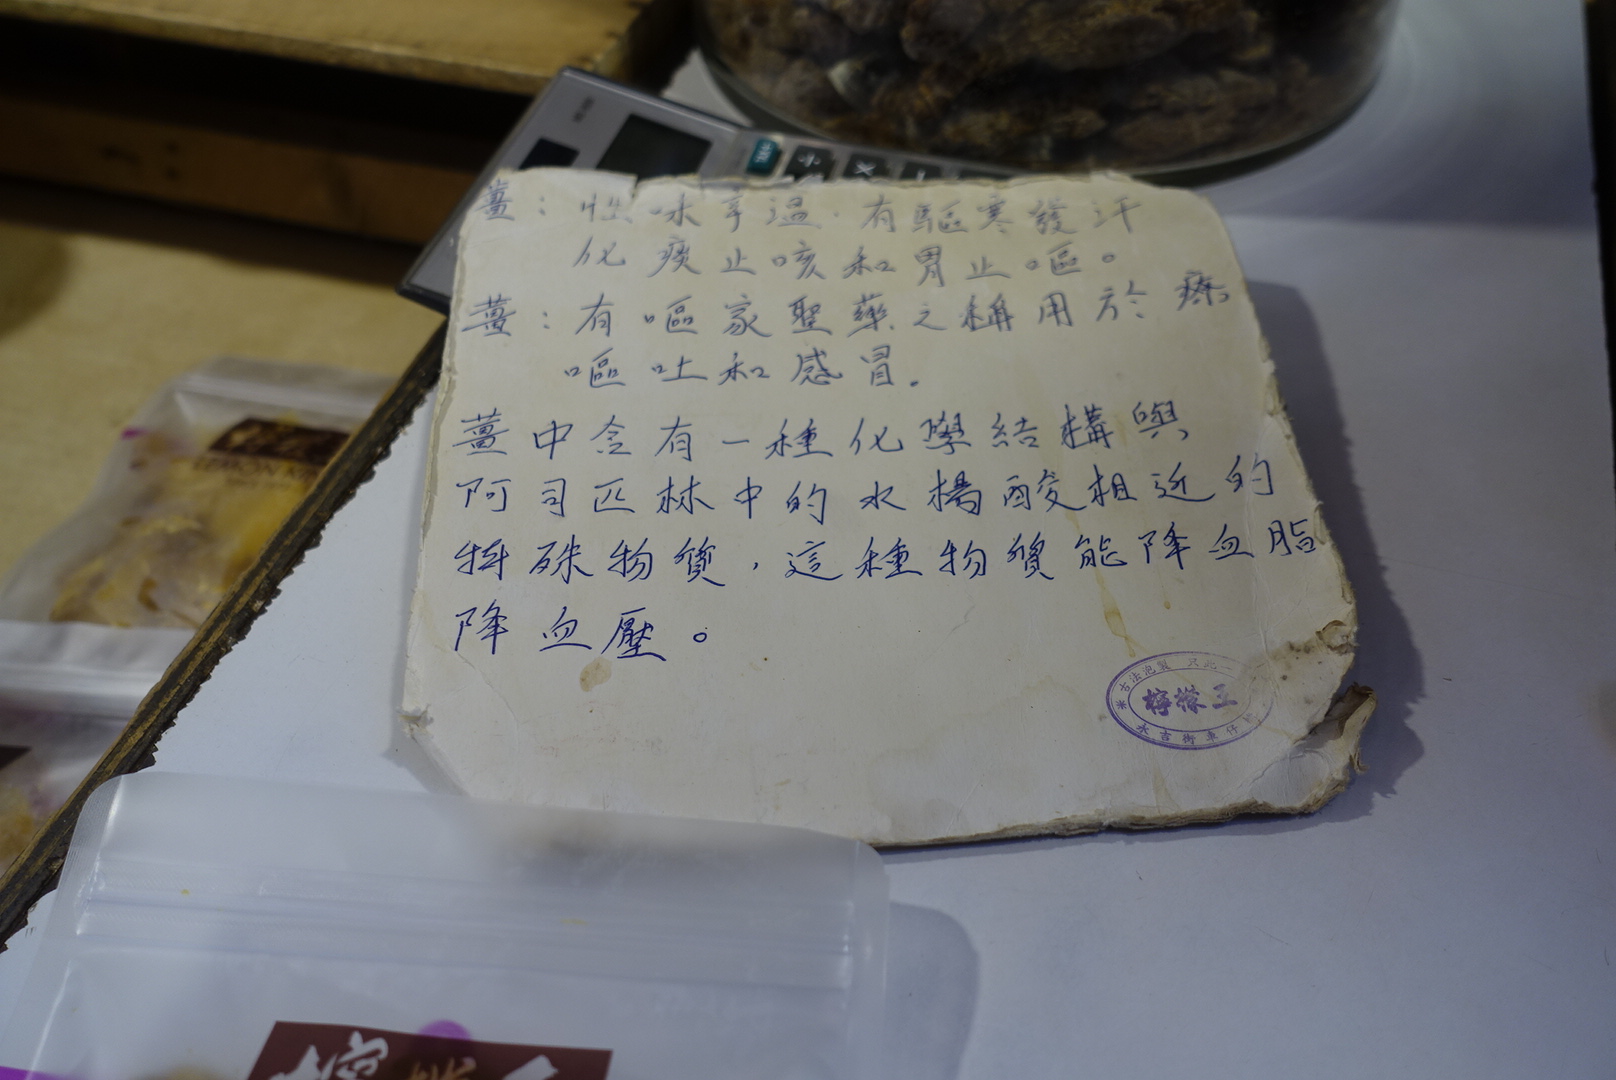 薑：性味辛溫．有驅寒發汗
化痰止咳和胃止嘔。
薑：有嘔家聖藥之稱用於療
嘔吐和感冒.
薑中含有一種化學結構與
阿司匹林中的水楊酸相近的
特殊物質，這種物質能降血脂
降血壓。
古法泡製 只此一
檸檬王
永吉街車仔
LEMON